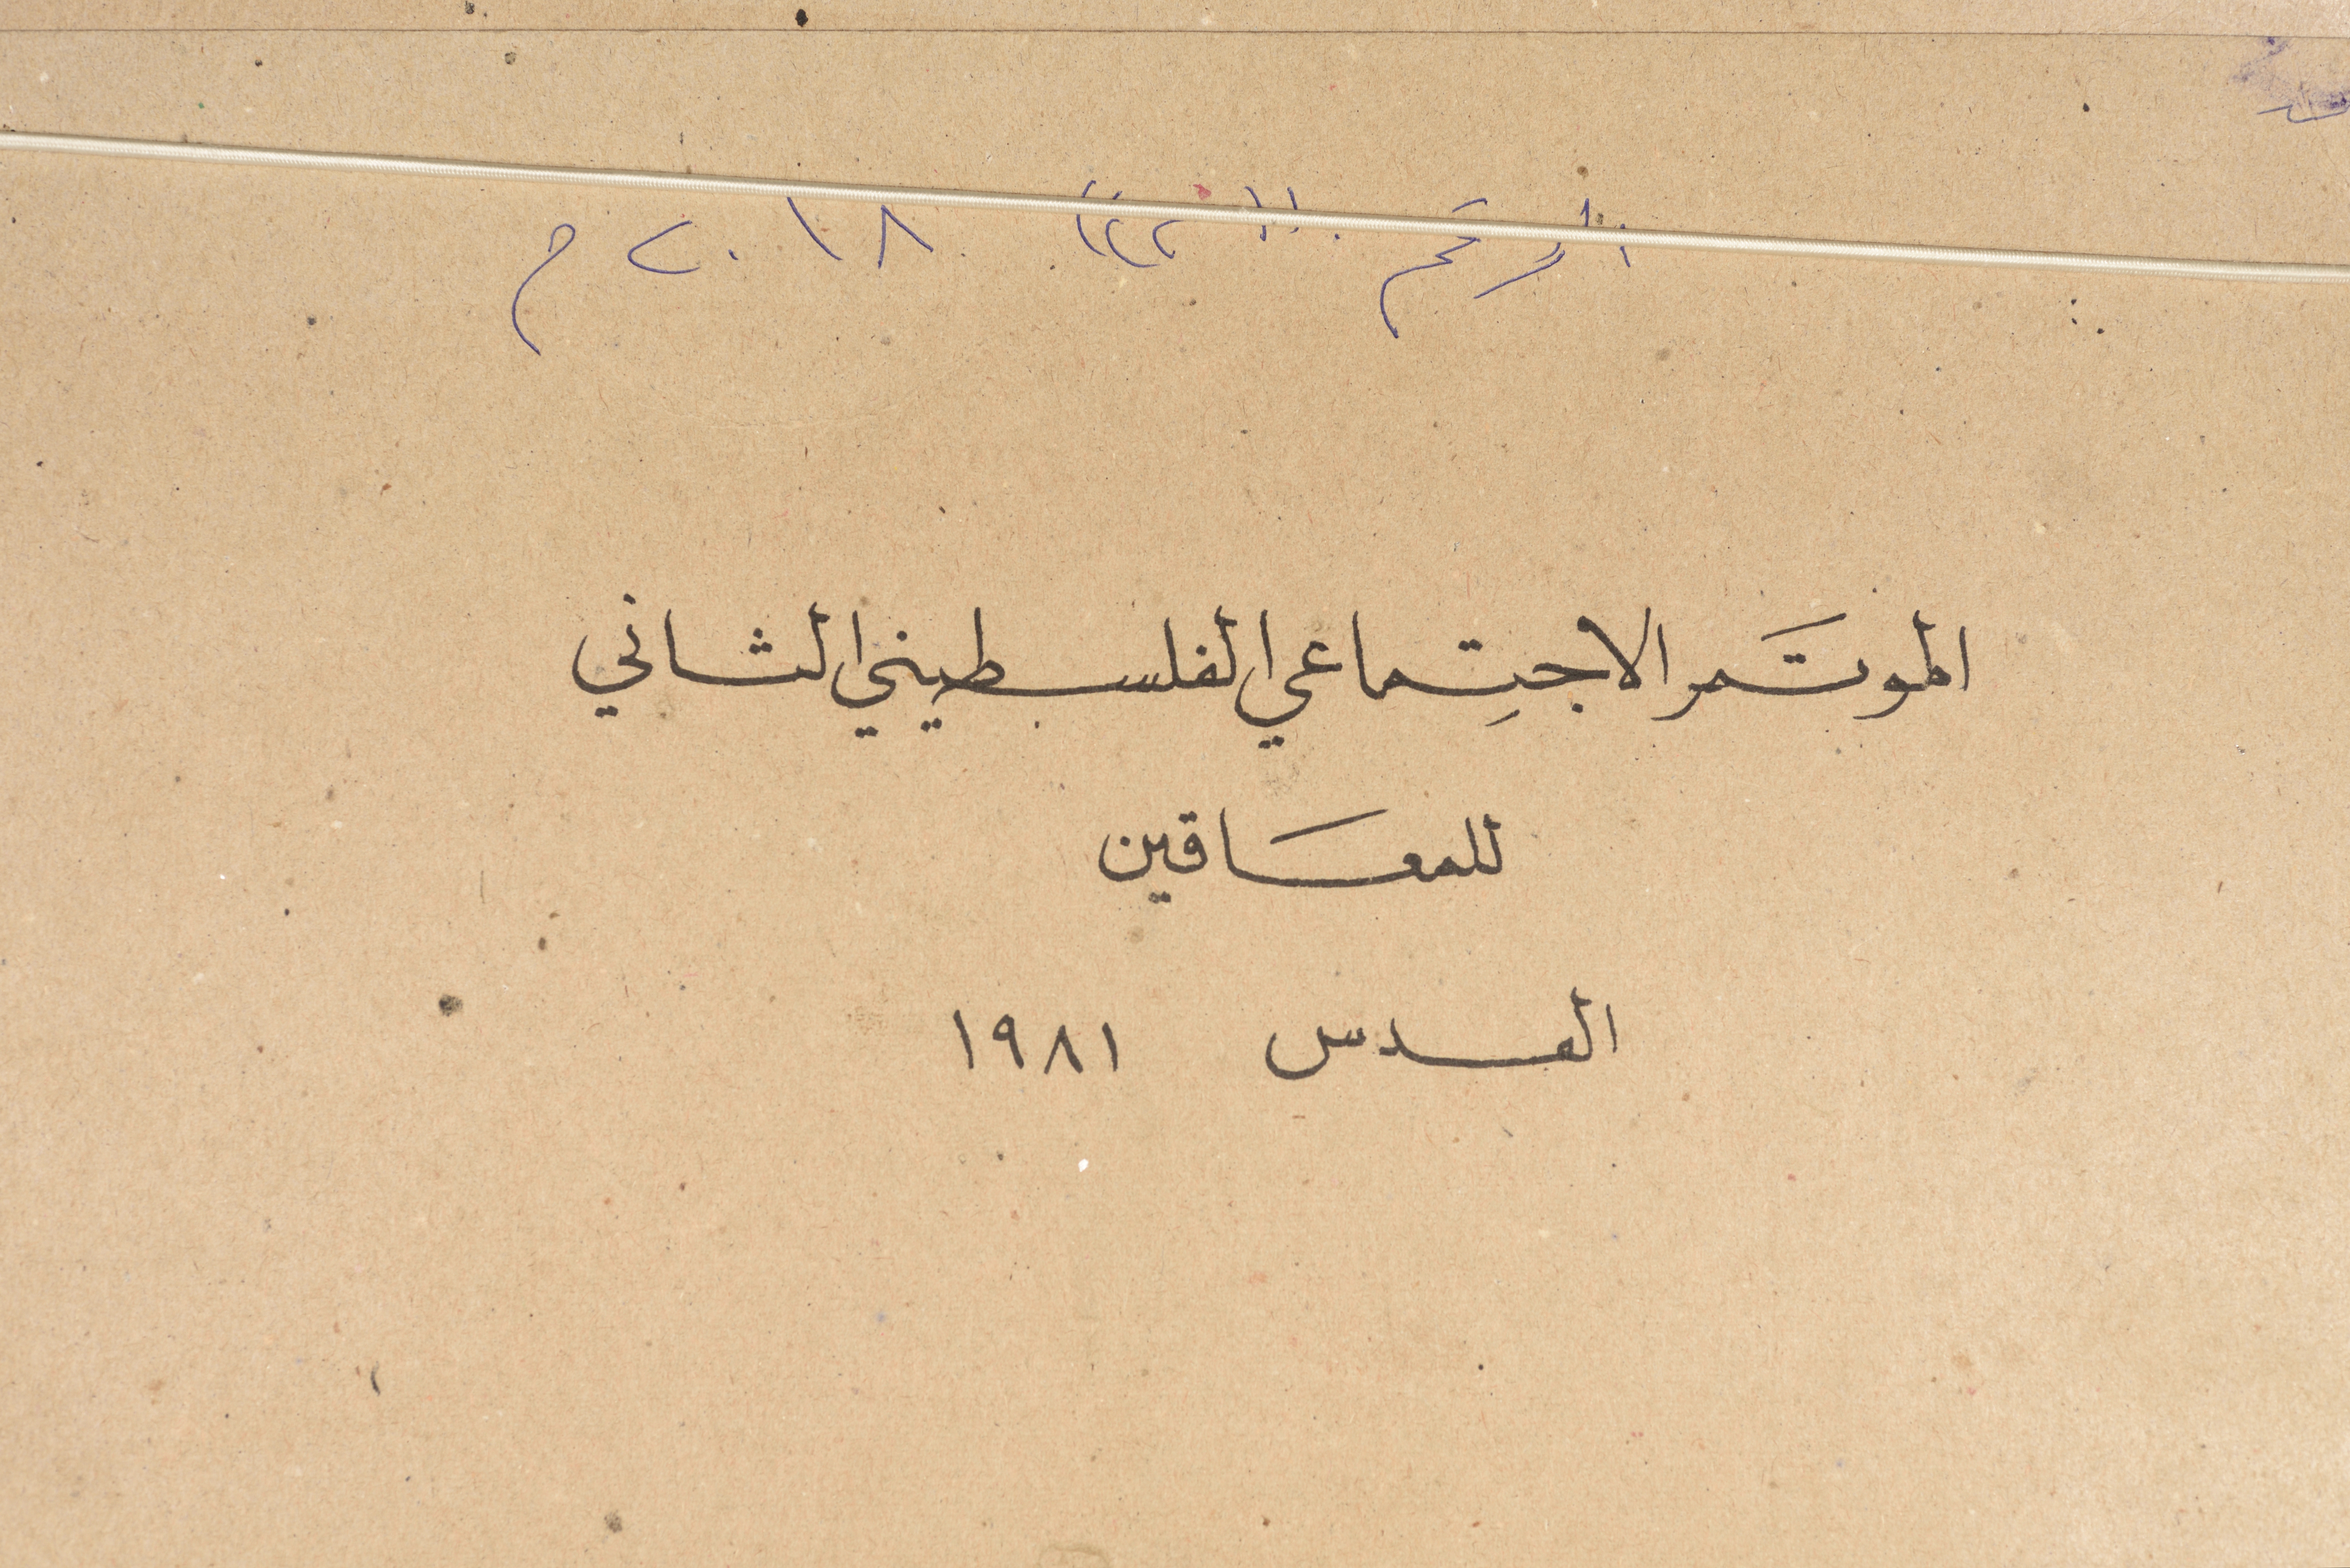 الرقم ٢٠١٨ م
الموتَمر الاجتِماعي الفلسطيني الثاني
للمعَاقين
القدس ١٩٨١